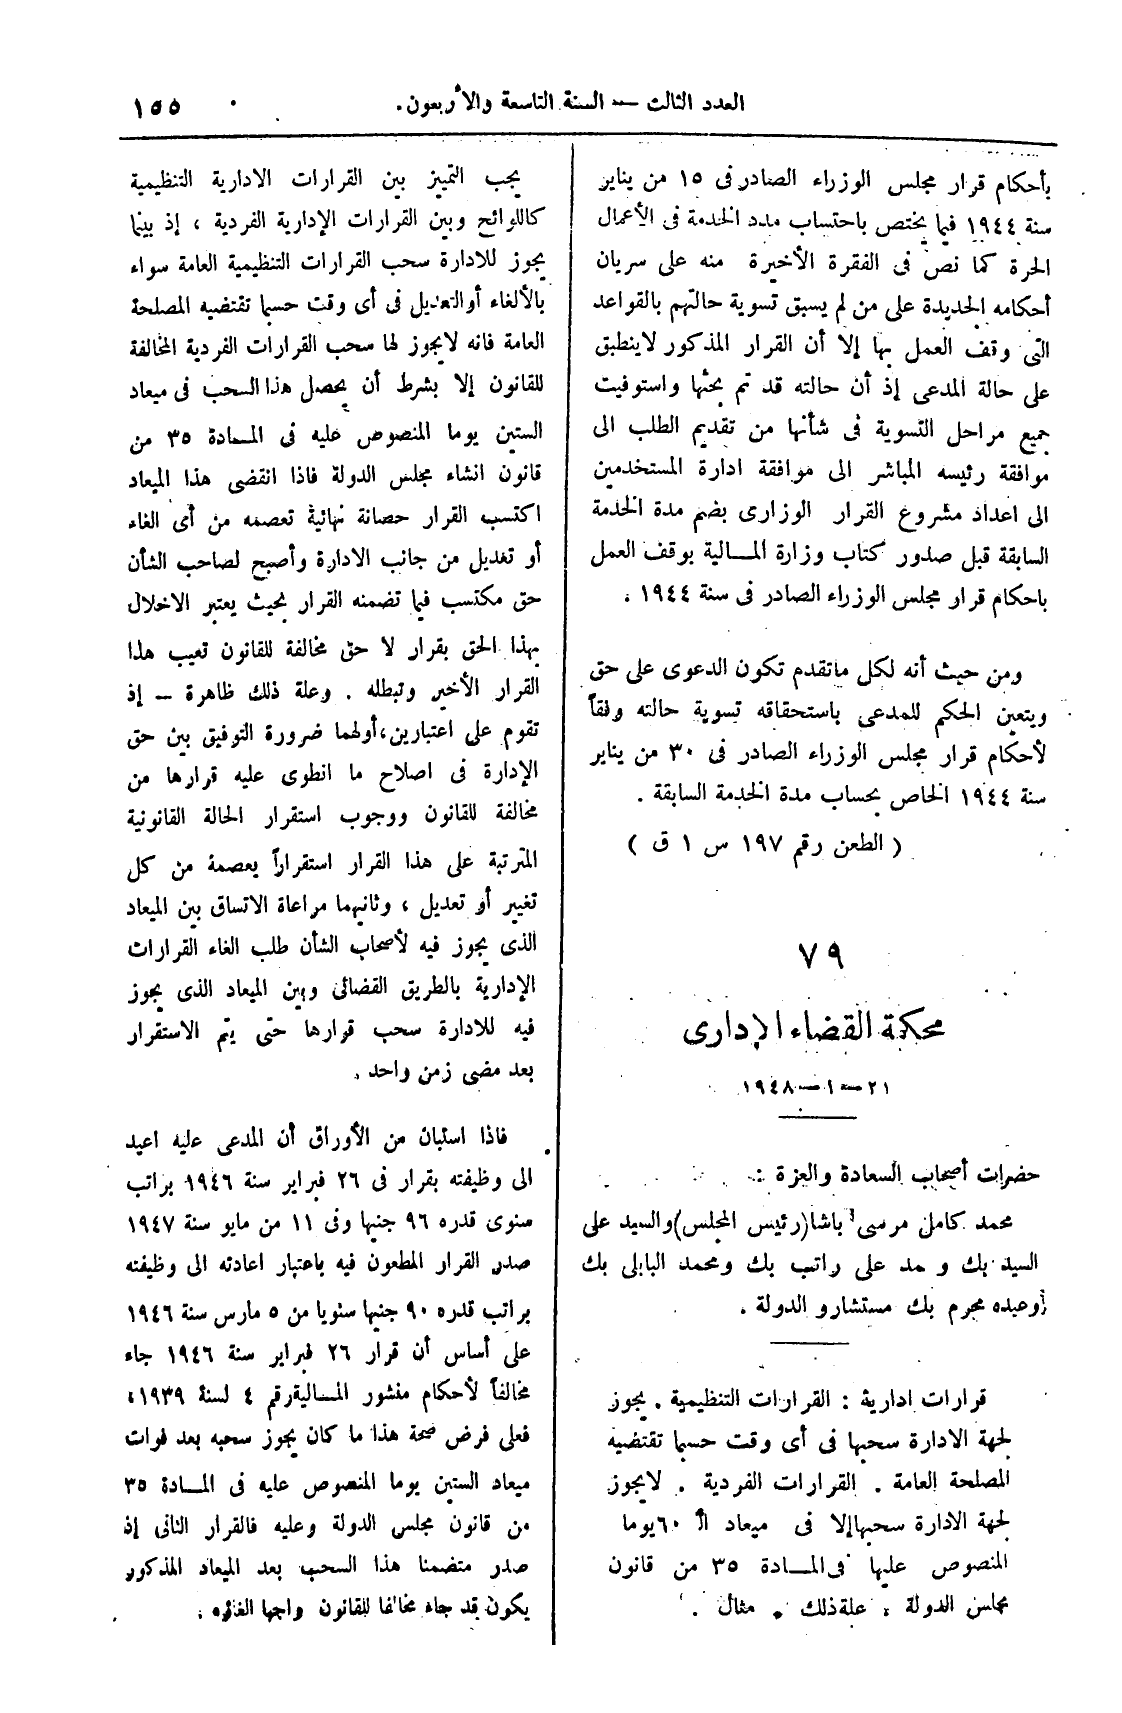 العدد الثالث — السنة التاسعة والأربعون.
١٥٥
بأحكام قرار مجلس الوزراء الصادر فى ١٥ من يناير
سنة ١٩٤٤ فيما يختص باحتساب مدد الخدمة فى الأعمال
الحرة كما نص فى الفقرة الأخيرة منه على سريان
أحكامه الجديدة على من لم يسبق تسوية حالتهم بالقواعد
التى وقف العمل بها إلا أن القرار المذكور لاينطبق
على حالة المدعى إذ أن حالته قد تم بحثها واستوفيت
جميع مراحل التسوية فى شأنها من تقديم الطلب الى
موافقة رئيسه المباشر الى موافقة ادارة المستخدمين
الى اعداد مشروع القرار الوزارى بضم مدة الخدمة
السابقة قبل صدور كتاب وزارة المالية بوقف العمل
باحكام قرار مجلس الوزراء الصادر فى سنة ١٩٤٤ .
ومن حيث أنه لكل ماتقدم تكون الدعوى على حق
ويتعين الحكم للمدعى باستحقاقه تسوية حالته وفقاً
لأحكام قرار مجلس الوزراء الصادر فى ٣٠ من يناير
سنة ١٩٤٤ الخاص بحساب مدة الخدمة السابقة .
( الطعن رقم ١٩٧ س ١ ق )
٧٩
محكمة القضاء الإدارى
٢١ — ١ — ١٩٤٨
حضرات أصحاب السعادة والعزة :
محمد كامل مرسى باشا (رئيس المجلس) والسيد على
السيد بك و مد على راتب بك ومحمد البابلى بك
وعبده محرم بك مستشارو الدولة .
قرارات ادارية : القرارات التنظيمية . يجوز
لجهة الادارة سحبها فى أى وقت حسبما تقتضيه
المصلحة العامة . القرارات الفردية . لايجوز
لجهة الادارة سحبها إلا فى ميعاد الـ ٦٠ يوما
المنصوص عليها فى المادة ٣٥ من قانون
مجلس الدولة . علة ذلك . مثال .
يجب التمييز بين القرارات الادارية التنظيمية
كاللوائح وبين القرارات الإدارية الفردية ، إذ بينما
يجوز للادارة سحب القرارات التنظيمية العامة سواء
بالألغاء أو التعديل فى أى وقت حسبما تقتضيه المصلحة
العامة فانه لايجوز لها سحب القرارات الفردية المخالفة
للقانون إلا بشرط أن يحصل هذا السحب فى ميعاد
الستين يوما المنصوص عليه فى المادة ٣٥ من
قانون انشاء مجلس الدولة فاذا انقضى هذا الميعاد
اكتسب القرار حصانة نهائية تعصمه من أى الغاء
أو تعديل من جانب الادارة وأصبح لصاحب الشأن
حق مكتسب فيما تضمنه القرار بحيث يعتبر الاخلال
بهذا الحق بقرار لا حق مخالفة للقانون تعيب هذا
القرار الأخير وتبطله . وعلة ذلك ظاهرة — إذ
تقوم على اعتبارين ، أولهما ضرورة التوفيق بين حق
الإدارة فى اصلاح ما انطوى عليه قرارها من
مخالفة للقانون ووجوب استقرار الحالة القانونية
المترتبة على هذا القرار استقراراً يعصمة من كل
تغيير أو تعديل ، وثانيهما مراعاة الاتساق بين الميعاد
الذى يجوز فيه لأصحاب الشأن طلب الغاء القرارات
الإدارية بالطريق القضائى وبين الميعاد الذى يجوز
فيه للادارة سحب قرارها حتى يتم الاستقرار
بعد مضى زمن واحد .
فاذا استبان من الأوراق أن المدعى عليه اعيد
الى وظيفته بقرار فى ٢٦ فبراير سنة ١٩٤٦ براتب
سنوى قدره ٩٦ جنيها وفى ١١ من مايو سنة ١٩٤٧
صدر القرار المطعون فيه باعتبار اعادته الى وظيفته
براتب قدره ٩٠ جنيها سنويا من ٥ مارس سنة ١٩٤٦
على أساس أن قرار ٢٦ فبراير سنة ١٩٤٦ جاء
مخالفاً لأحكام منشور المالية رقم ٤ لسنة ١٩٣٩،
فعلى فرض صحة هذا ما كان يجوز سحبه بعد فوات
ميعاد الستين يوما المنصوص عليه فى المادة ٣٥
من قانون مجلس الدولة وعليه فالقرار الثانى إذ
صدر متضمنا هذا السحب بعد الميعاد المذكور
يكون قد جاء مخالفا للقانون واجبا الغاؤه .